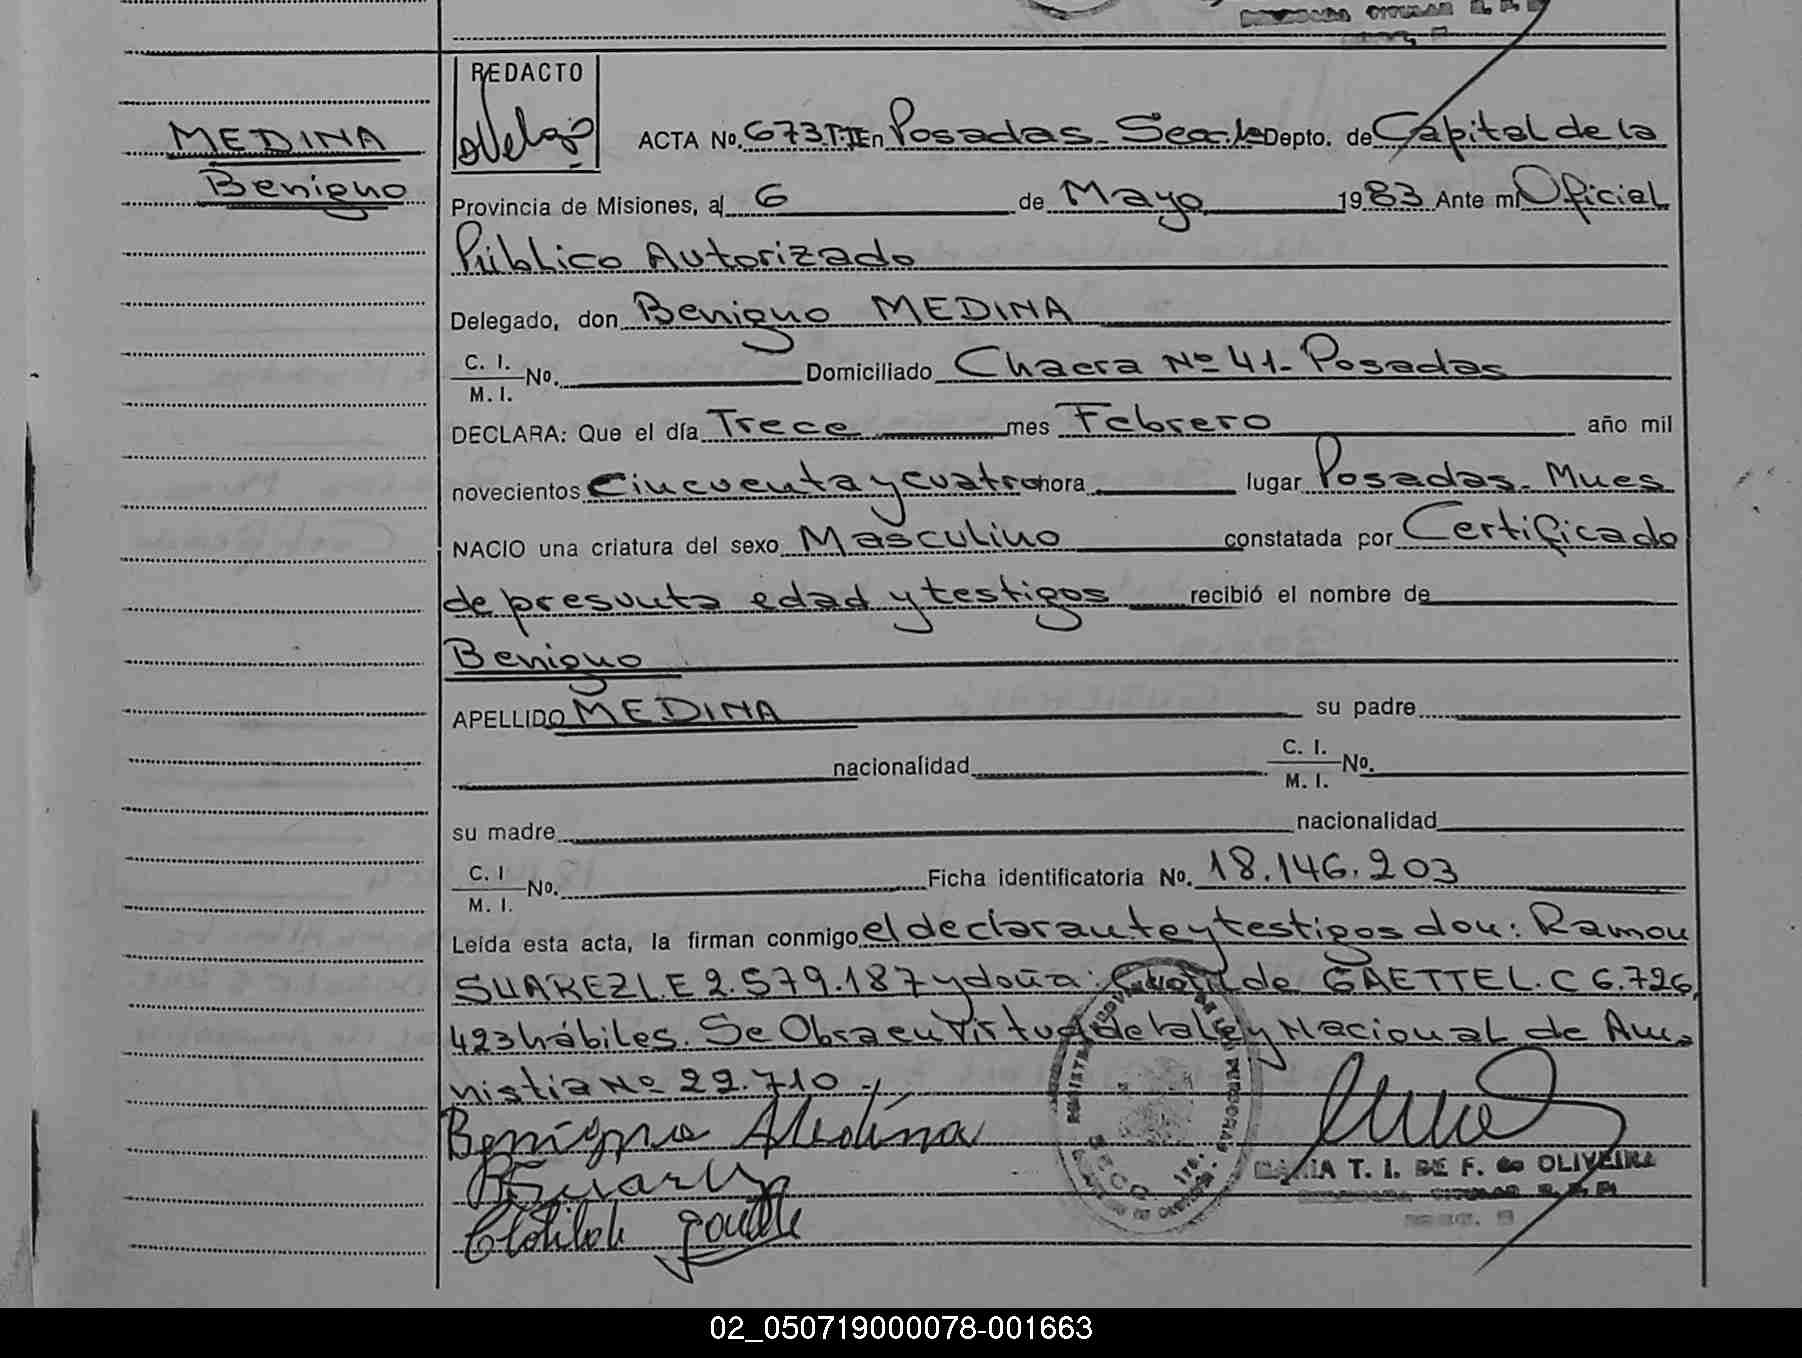 DELEGADA TITULAR R. P.
MEDINA
Benigno
REDACTO
ACTA No. 673.T.II En Posadas - Secc. 1a Depto. de Capital de la
Provincia de Misiones, al 6 de Mayo 1983 Ante mi Oficial
Público Autorizado
Delegado, don Benigno MEDINA
C. I.
M. I. No. Domiciliado Chacra Nº 41 - Posadas
DECLARA: Que el día Trece mes Febrero año mil
novecientos Cincuenta y cuatro hora lugar Posadas - Mnes
NACIO una criatura del sexo Masculino constatada por Certificado
de presunta edad y testigos recibió el nombre de
Benigno
APELLIDO MEDINA su padre
nacionalidad C. I.
M. I. No.
su madre nacionalidad
C. I
M. I. No. Ficha identificatoria No. 18.146.203
Leída esta acta, la firman conmigo el declarante y testigos don: Ramon
SUAREZ L.E 2.579.187 y doña: Clotilde GAETTE L.C 6.726.
423 hábiles. Se Obra en Virtud de la ley Nacional de Am-
nistia Nº 22.710 -
Benigno Medina
Clotilde Gaette
MARIA T. I. DE F. de OLIVEIRA
DELEGADA TITULAR R. P.
SECC. 
02_050719000078-001663